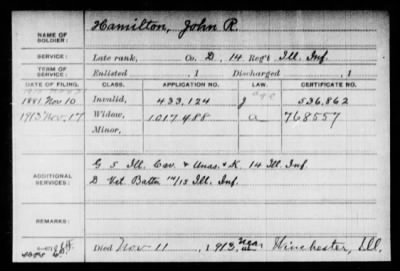 NAME OF SOLDIER: Hamilton, John R.
SERVICE: Late rank, Co. D, 14 Reg't Ill. Inf.
TERM OF SERVICE: Enlisted , 1 Discharged , 1
DATE OF FILING. CLASS. APPLICATION NO. LAW. CERTIFICATE NO.
1881 Nov 10 Invalid, 433.124 J 536.862
1913 Nov. 17 Widow, 1017488 a 768557
Minor,
ADDITIONAL SERVICES: G 5 Ill. Cav. & Unas. & K. 14 Ill Inf
D Vet Battn 14/15 Ill. Inf.
REMARKS:
Died Nov 11, 1913, near Winchester, Ill.